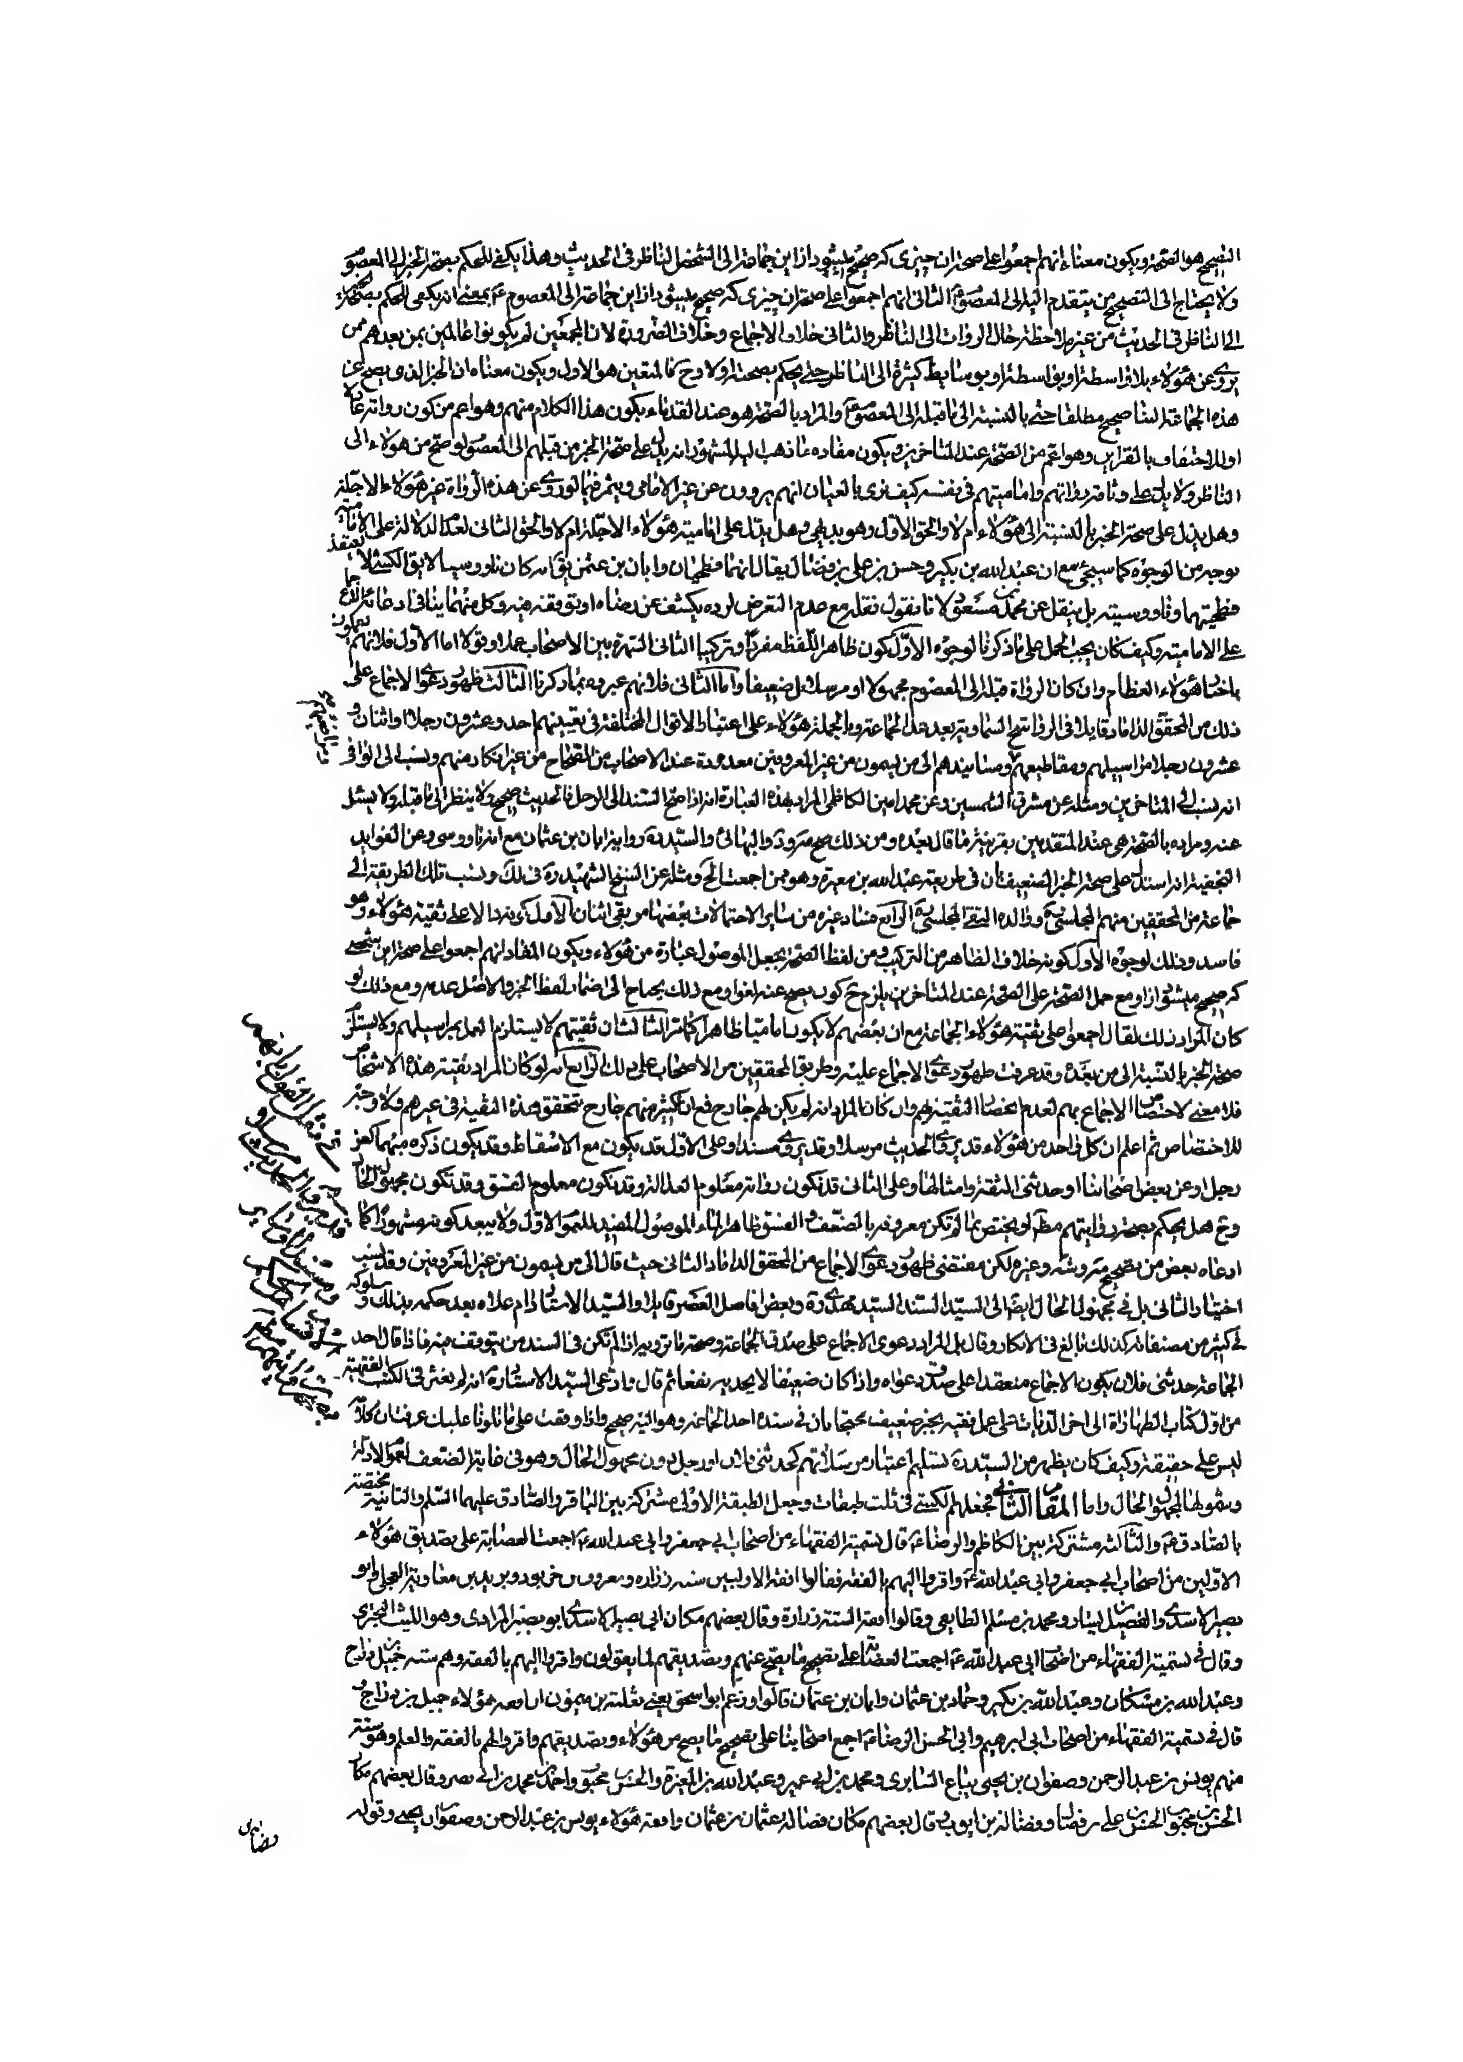 التصحيح هو الصحة ويكون معناه انهم اجمعوا على صحة ان چيزى كه صحيح ميشود از اين جماعة الى الشخص الناظر فى الحديث وهذا يكفى للحكم بصحة الخبر الى المعصوم
ولا يحتاج الى التصحيح من يتقدم اليه الى المعصوم الثانى انهم اجمعوا على صحة ان چيزى كه صحيح ميشود از اين جماعة الى المعصوم ع بمعنى انه يكفى الحكم بصحة
الى الناظر فى الحديث من غير ملاحظة حال الروات الى الناظر والثانى خلاف الاجماع وخلاف الضرورة لان المجمعين لم يكونوا عالمين بمن بعدهم ممن
يروى عن هؤلاء بلا واسطة او بواسطة او بوسايط كثيرة الى الناظر حتى يحكم بصحته اولا وح فالمتعين هو الاول ويكون معناه ان الخبر الذى يصح عن
هذه الجماعة الينا صحيح مطلقا حتى بالنسبة الى ما قبله الى المعصوم ع والمراد بالصحة هو عند القدماء يكون هذا الكلام منهم وهو اعم من كون رواته عادلا
او الاحتفاف بالقراين وهو اعم من الصحة عند المتاخرين ويكون مفاده ما ذهب اليه المشهور انه يدل على صحة الخبر من قبلهم الى المعصوم لو صح من هؤلاء الى
الناظر ولا يدل على وثاقة رواتهم واماميتهم فى نفسه كيف نرى بالعيان انهم يروون عن غير الامامى ويثمر فيما لو روى عن هذه الرواة غير هؤلاء الاجلة
وهل يدل على صحة الخبر بالنسبة الى هؤلاء ام لا والحق الاول وهو بديهى وهل يدل على امامية هؤلاء الاجلة ام لا والحق الثانى لعدم الدلالة على الامامية
بوجه من الوجوه كما سيجئ مع ان عبد الله بن بكير وحسن بن على بن فضال يقال انهما فطحيان وابان بن عثمن يق انه كان ناووسيا لا يق الكشى لا يعتقد
فطحيتهما وناووسيته بل ينقل عن محمد بن مسعود لانا نقول نقله مع عدم التعرض لرده يكشف عن رضاه او توقفه فيه وكل منهما ينافى ادعائه الاجماع
على الامامية وكيف كان يجب الحمل على ما ذكرنا لوجوه الاول كون ظاهر اللفظ مفردا وتركيبا الثانى الشهرة بين الاصحاب عملا وقولا اما الاول فلانهم يعملون
باخبار هؤلاء العظام وان كان الرواة قبله الى المعصوم مجهولا او مرسلا بل ضعيفا واما الثانى فلانهم عبروه بما ذكرنا الثالث ظهور دعوى الاجماع على
ذلك من المحقق الداماد قايلا فى الرواشح السماوية بعد عد الجماعة وبالجملة هؤلاء على اعتبار الاقوال المختلفة فى تعيينهم احد وعشرون رجلا او اثنان و
عشرون رجلا مراسيلهم ومقاطيعهم ومسانيدهم الى من يسمون من غير المعروفين معدودة عند الاصحاب من الصحاح من غير نكار منهم ونسب الى الوافى
انه نسب الى المتاخرين ومثله عن مشرق الشمسين وعن محمد امين الكاظمى المراد بهذه العبارة انه اذا صح السند الى الرجل فالحديث صحيح ولا ينظر الى ما قبله ولا يسئل
عنه ومراده بالصحة هى عند المتقدمين بقرينة ما قال بعده ومن ذلك صح مروره والبهائى والسيد ره رواية ابان بن عثمان مع انه ناووسى وعن الفوايد
النجفية انه استدل على صحة الخبر الضعيف بان فى طريقه عبد الله بن مغيرة وهو ممن اجمعت الخ ومثله عن الشيخ الشهيد ره فى ذلك ونسب تلك الطريقة الى
جماعة من المحققين منهم المجلسى ره ووالده التقى المجلسى ره الرابع فساد غيره من ساير الاحتمالات بعضها مر بقى اثنان الاول كونه دالا على ثقية هؤلاء وهو
فاسد وذلك لوجوه الاول كونه خلاف الظاهر من التركيب ومن لفظ الصحة بجعل الموصول عبارة من هؤلاء ويكون المفاد انهم اجمعوا على صحة اين شخصى
كه صحيح ميشود از او مع حمل الصحة على الصحة عند المتاخرين يلزم ح كون يصح عنه لغوا ومع ذلك يحتاج الى اضمار لفظ الخبر والاصل عدمه ومع ذلك لو
كان المراد ذلك لقال اجمعوا على ثقية هؤلاء الجماعة مع ان بعضهم لا يكون اماميا ظاهرا كما مر الثالث ان ثقيتهم لا يستلزم العمل بمراسيلهم ولا يستلزم
صحة الخبر بالنسبة الى من بعده وقد عرفت ظهور دعوى الاجماع عليه وطريق المحققين من الاصحاب على ذلك الرابع انه لو كان المراد ثقية هذه الاشخاص
فلا معنى لاختصاص الاجماع بهم لعدم انحصار الثقية بهم وان كان المراد انه لم يكن لهم جارح فع ان كثير منهم جارح تتحقق هذه الثقية فى غيرهم ولا وجه
للاختصاص ثم اعلم ان كل واحد من هؤلاء قد يروى الحديث مرسلا وقد يروى مسندا وعلى الاول قد يكون مع الاسقاط وقد يكون ذكره مبهما كعن
رجل او عن بعض اصحابنا او حدثنى الثقة وامثالها وعلى الثانى قد تكون رواته معلوم العدالة وقد تكون معلوم الفسق وقد تكون مجهول الحال
وح هل يحكم بصحة روايتهم مطلقا او يختص بما لم تكن معروفة بالضعف والفسق ظاهر الهاء الموصول المفيد للعموم الاول ولا يبعد كونه مشهورا كما
ادعاه بعض من تصحيح مر وشه وغيره لكن مقتضى ظهور دعوى الاجماع من المحقق الداماد الثانى حيث قال الى من يسمون من غير المعروفين وقد نسب
اختيار الثانى بل فى مجهول الحال ايضا الى السيد السند السيد مهدى ره وبعض افاضل العصر قايلا والسيد الاستاد دام علاه بعد حكمه بذلك وسلوكه
فى كثير من مصنفاته كذلك بالغ فى الانكار وقال بل المراد دعوى الاجماع على صدق الجماعة وصحة ما ترويه اذا لم تكن فى السند من يتوقف فيه فاذا قال احد
الجماعة حدثنى فلان يكون الاجماع منعقدا على صدق دعواه واذا كان ضعيفا لا يجديه نفعا ثم قال وادعى السيد الاستاد ره انه لم يعثر فى الكتب الفقهية
من اول كتاب الطهارة الى اخر الديات على عمل فقيه بخبر ضعيف محتجا بان فى سنده احد الجماعة وهو اليه صحيح واذا وقفت على ما تلونا عليك عرفت ان كلامه
ليس على حقيقته وكيف كان يظهر من السيد ره تسليم اعتبار مرسلاتهم كحدثنى فلان او رجل دون مجهول الحال وهو فى غاية الضعف لعموم الادلة
وشمولها لمجهول الحال واما المقام الثانى فجعلهم الكشى فى ثلث طبقات وجعل الطبقة الاولى مشتركة بين الباقر والصادق عليهما السلم والثانية مختصة
بالصادق ع والثالثة مشتركة بين الكاظم والرضا ع قال تسمية الفقهاء من اصحاب ابى جعفر وابى عبد الله ع اجمعت العصابة على تصديق هؤلاء
الاولين من اصحاب ابى جعفر وابى عبد الله ع واقروا اليهم بالفقه فقالوا افقه الاولين ستة زراره ومعروف بن خربوذ وبريد بن معاوية العجلى وابو
بصير الاسدى والفضيل بن يسار ومحمد بن مسلم الطايفى وقالوا افقه الستة زرارة وقال بعضهم مكان ابى بصير الاسدى ابو بصير المرادى وهو الليث البخترى
وقال فى تسمية الفقهاء من اصحاب ابى عبد الله ع اجمعت العصابة على تصحيح ما يصح عنهم وتصديقهم لما يقولون واقروا اليهم بالفقه وهم ستة جميل بن دراج
وعبد الله بن مسكان وعبد الله بن بكير وحماد بن عثمان وابان بن عثمان قالوا وزعم ابو اسحق يعنى ثعلبة بن ميمون ان افقه هؤلاء جميل بن دراج و
قال فى تسمية الفقهاء من اصحاب ابى ابرهيم وابى الحسن الرضا ع اجمع اصحابنا على تصحيح ما يصح من هؤلاء وتصديقهم واقروا لهم بالفقه والعلم وهو ستة
منهم يونس بن عبد الرحمن وصفوان بن يحيى بياع السابرى ومحمد بن ابى عمير وعبد الله بن المغيرة والحسن بن محبوب واحمد بن محمد بن ابى نصر وقال بعضهم مكان
الحسن بن محبوب الحسن بن على بن فضال وفضالة بن ايوب وقال بعضهم مكان فضالة عثمان بن عثمان وافقه هؤلاء يونس بن عبد الرحمن وصفوان بن يحيى وقوله